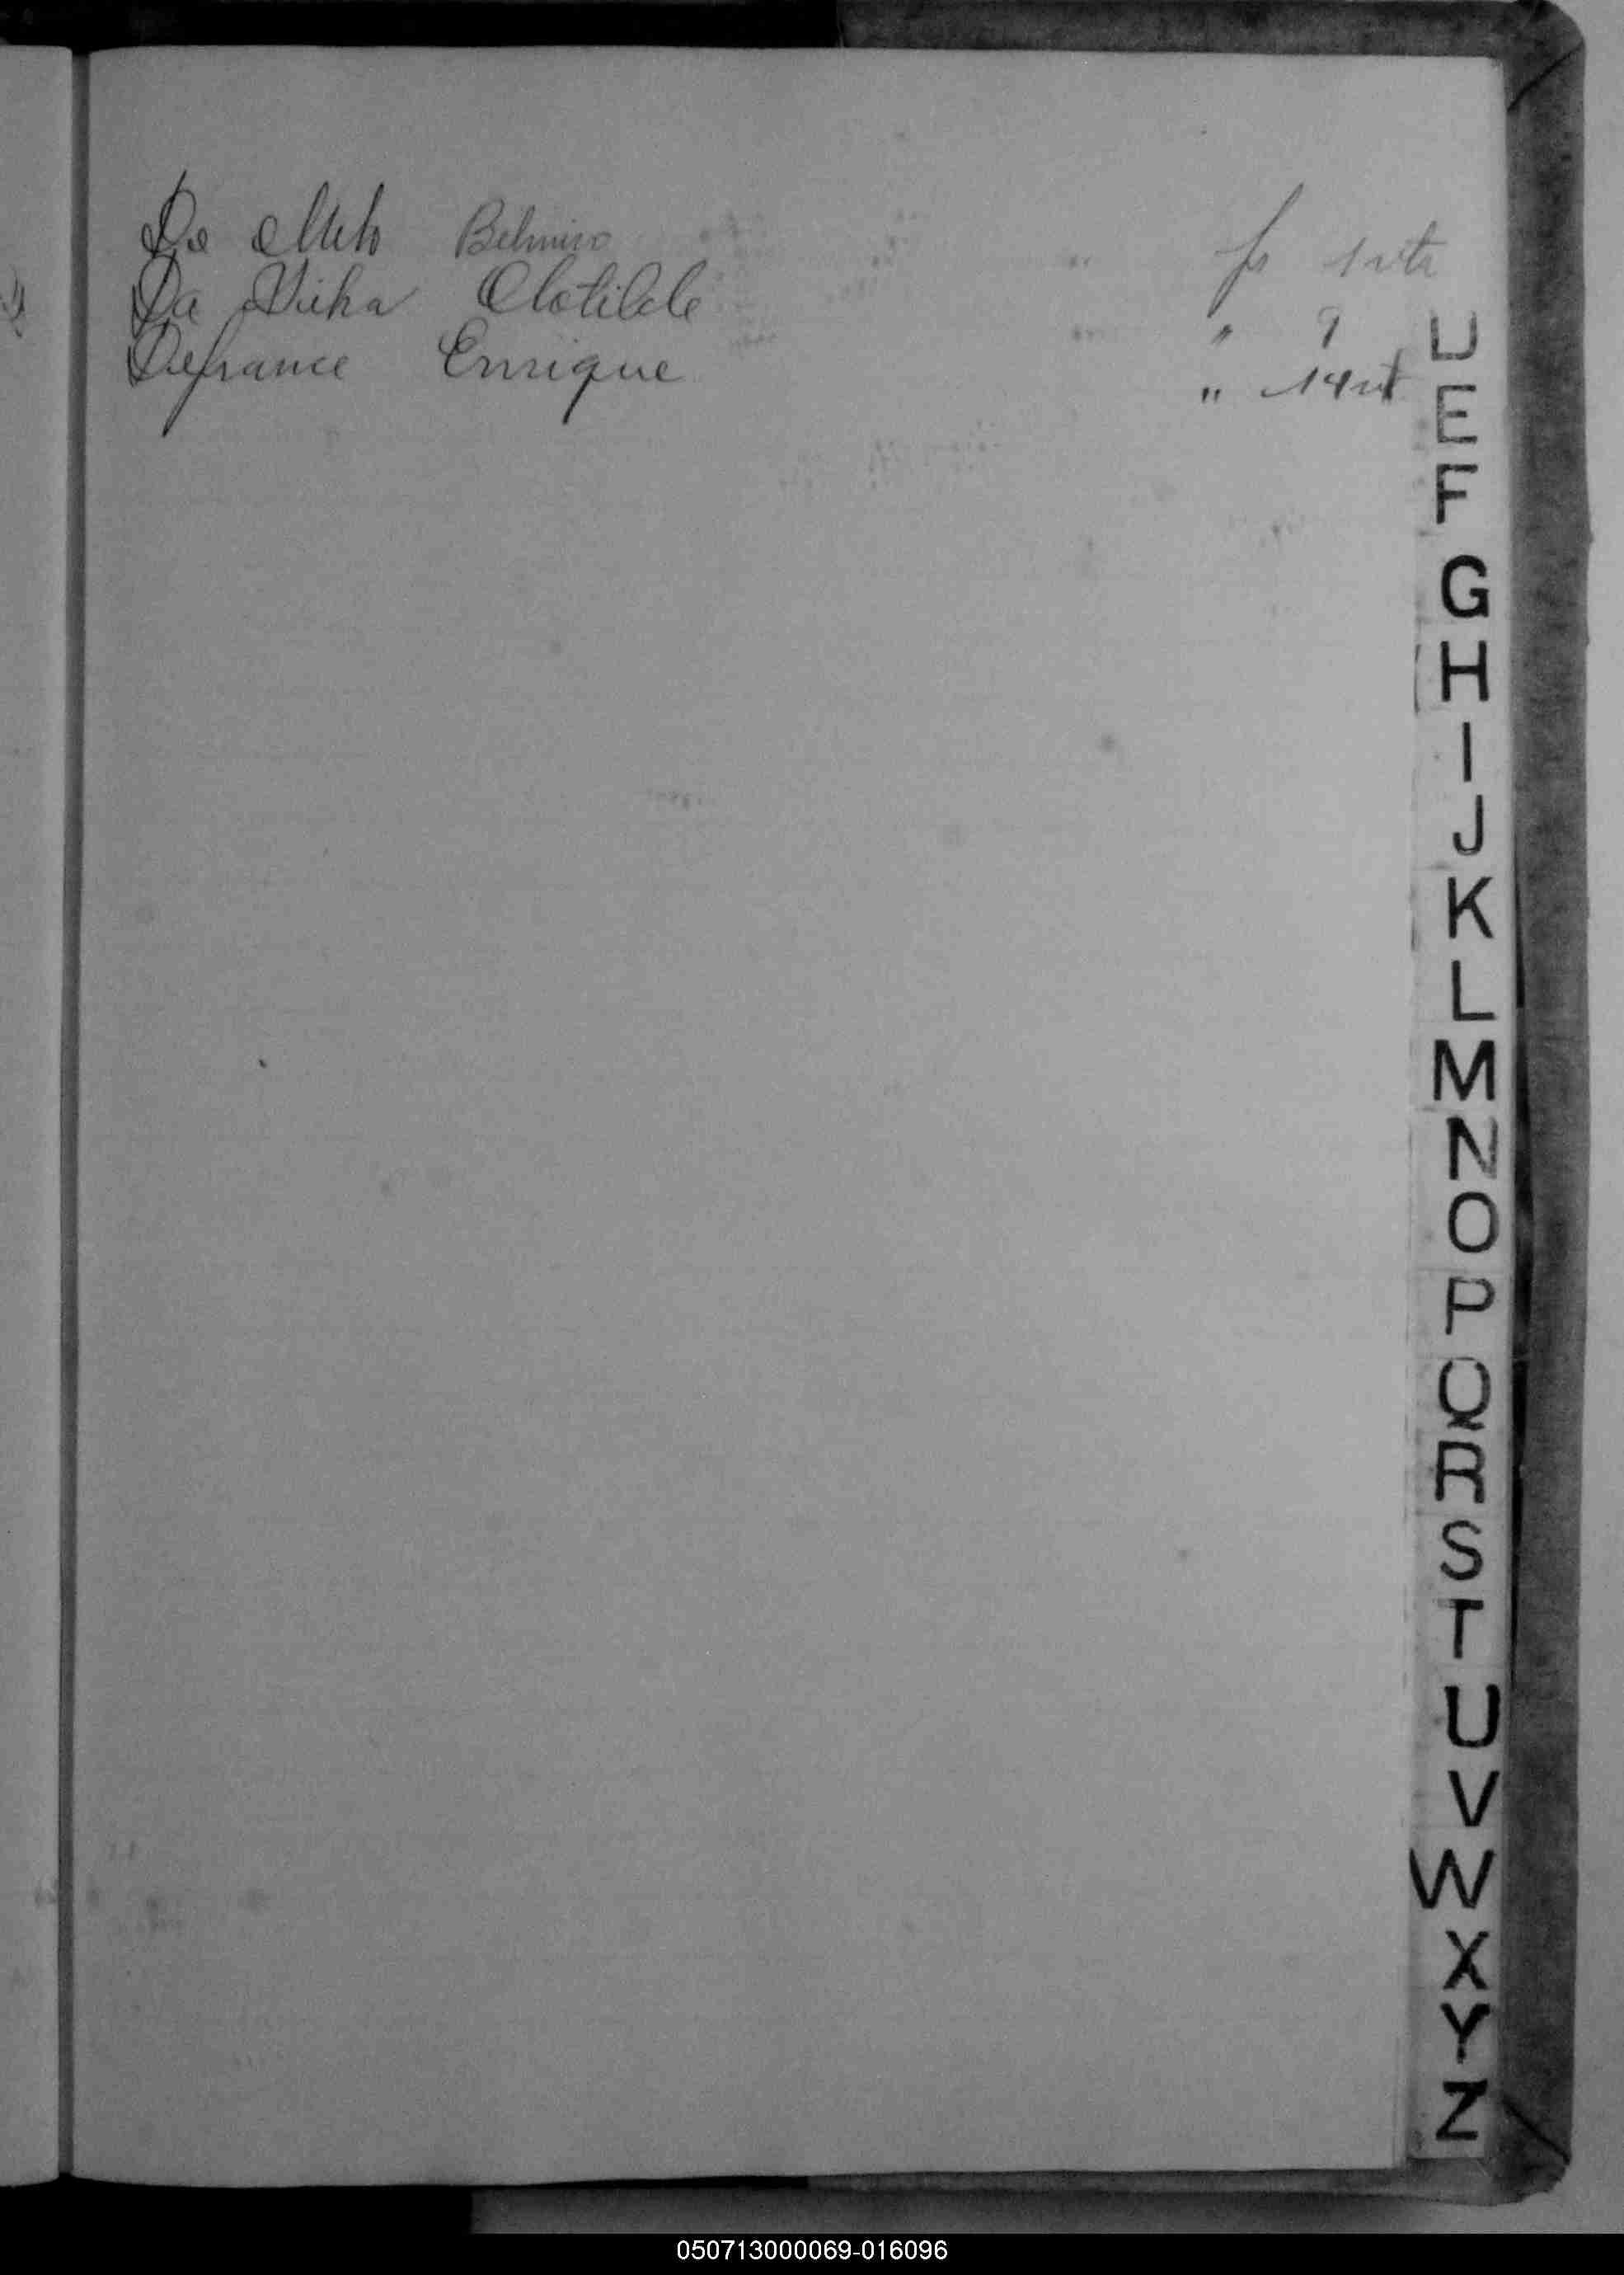 De Melo Belmiro fs 1 vta
Da Clotilde " 9
Defrance Enrique " 14 vt
D
E
F
G
H
I
J
K
L
M
N
O
P
Q
R
S
T
U
V
W
X
Y
Z
050713000069-016096